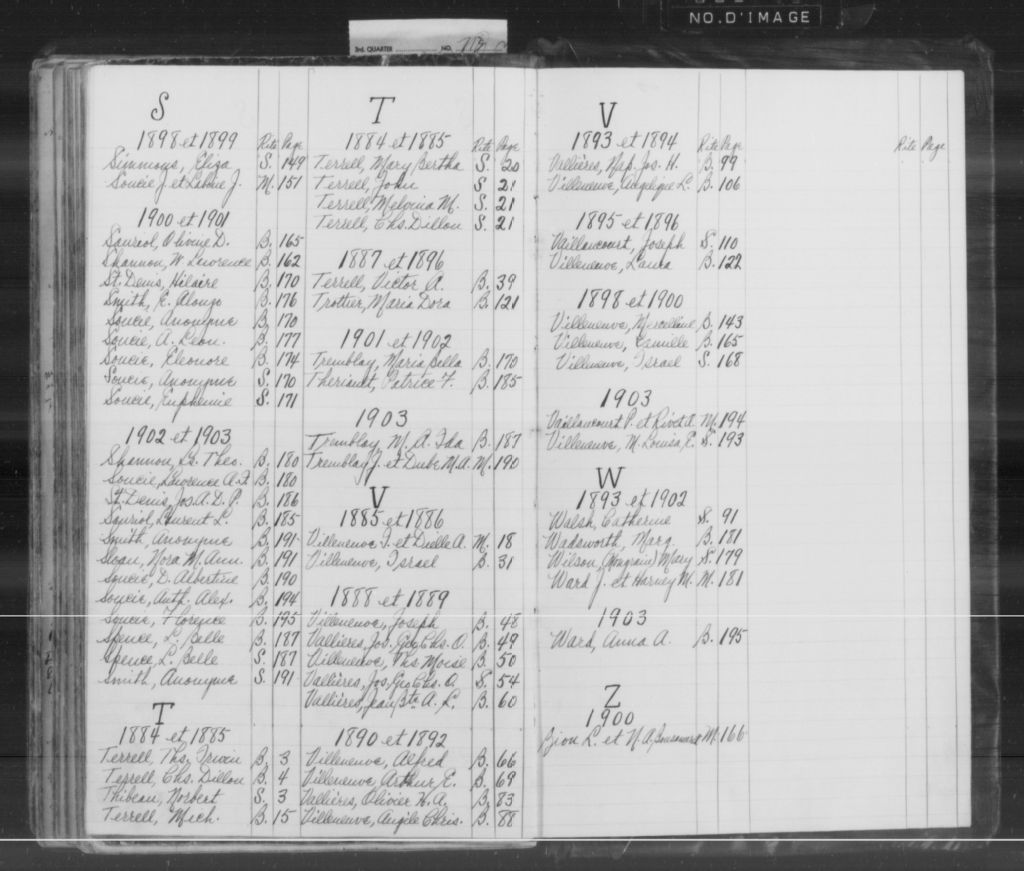 NO. D'IMAGE
3RD. QUARTER NO.
S
1898 et 1899 Rite Page
Simmons, Eliza S. 149
Soucie J. et Labine J. M. 151
1900 et 1901
Sauriol, Olivine D. B. 165
Shannon, W Lawrence B. 162
St. Denis, Hilaire B. 170
Smith, E. Alonzo B. 176
Soucie, Anonyme B. 170
Soucie, A. Leon. B. 177
Soucie, Eleonore B. 174
Soucie, Anonyme S. 170
Soucie, Euphemie S. 171
1902 et 1903
Shannon, Ls. Theo. B. 180
Soucie, Lawrence A. F. B. 180
St. Denis, Jos. A. D. P. B. 186
Sauriol, Laurent L. B. 185
Smith, Anonyme B. 191
Sloan, Nora M. Ann. B. 191
Soucie, D. Albertine B. 190
Soucie, Anth. Alex. B. 194
Soucie, Florence B. 195
Spence, L. Belle B. 187
Spence, L. Belle S. 187
Smith, Anonyme S. 191
T
1884 et 1885
Terrell, Ths. Irwin B. 3
Terrell, Chs. Dillon B. 4
Thibeau, Norbert S. 3
Terrell, Mich. B. 15
T
1884 et 1885 Rite Page
Terrell, Mary Bertha S. 20
Terrell, John S 21
Terrell, Melvina M. S. 21
Terrell, Chs. Dillon S. 21
1887 et 1896
Terrell, Victor A. B. 39
Trottier, Maria Dora B. 121
1901 et 1902
Tremblay, Maria Bella B. 170
Theriault, Patrice F. B. 185
1903
Tremblay, M. A. Ida B. 187
Tremblay J. et Dube M. A. M. 190
V
1885 et 1886
Villeneuve F. et Duelle A. M. 18
Villeneuve, Israel B. 31
1888 et 1889
Villeneuve, Joseph B. 48
Vallières, Jos. Geo Chs. O. B. 49
Villeneuve, Ths Moise B. 50
Vallières, Jos, Geo Chs. O. S. 54
Vallières, Jean Bte A. L. B. 60
1890 et 1892
Villeneuve, Alfred B. 66
Villeneuve, Arthur E. B. 69
Vallières, Olivier H. A. B. 83
Villeneuve, Angèle Chris. B. 88
V
1893 et 1894 Rite Page
Vallières, Nap. Jos. H. B. 99
Villeneuve, Angelique L. B. 106
1895 et 1896
Vaillancourt, Joseph S. 110
Villeneuve, Laura B. 122
1898 et 1900
Villeneuve, Marcelline B. 143
Villeneuve, Camille B. 165
Villeneuve, Israel S. 168
1903
Vaillancourt P. et Rivet A. M. 194
Villeneuve, M. Louisa, E. S. 193
W
1893 et 1902
Walsh, Catherine S. 91
Wadsworth, Marg. B. 181
Wilson, (Mongrain) Mary S. 179
Ward J. et Harney M. M. 181
1903
Ward, Anna A. B. 195
Z
1900
Zion L. et N. A. M. 166
Rite Page